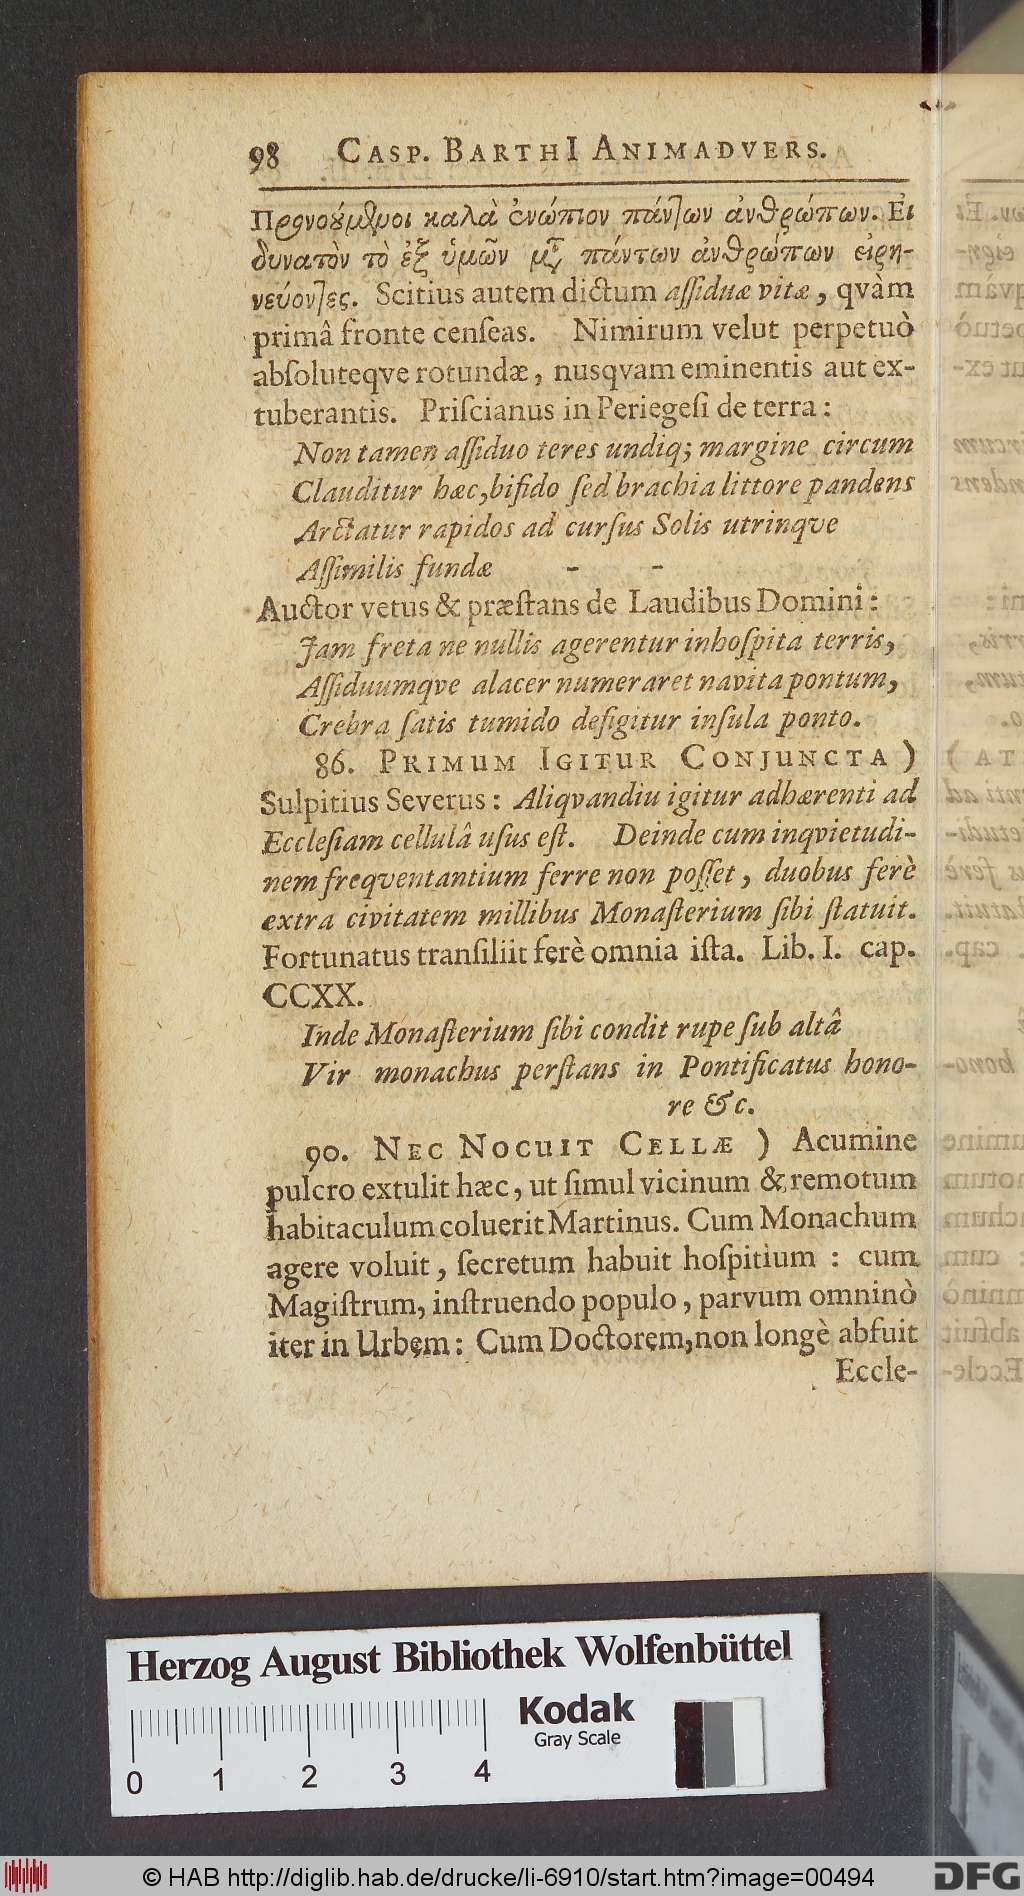 98 CASP. BARTHI ANIMADVERS.
Προνούμενοι καλὰ ἐνώπιον πάντων ἀνθρώπων. Εἰ
δυνατὸν τὸ ἐξ ὑμῶν μετὰ πάντων ἀνθρώπων εἰρη-
νεύοντες. Scitius autem dictum aſſiduæ vitæ, qvàm
primâ fronte cenſeas. Nimirum velut perpetuò
abſoluteqve rotundæ, nusqvam eminentis aut ex-
tuberantis. Priſcianus in Periegeſi de terra:
Non tamen aſſiduo teres undiq; margine circum
Clauditur hæc, bifido ſed brachia littore pandens
Arctatur rapidos ad curſus Solis utrinqve
Aſſimilis fundæ - -
Auctor vetus & præſtans de Laudibus Domini:
Jam freta ne nullis agerentur inhoſpita terris,
Aſſiduumqve alacer numeraret navita pontum,
Crebra ſatis tumido defigitur inſula ponto.
86. PRIMUM IGITUR CONJUNCTA)
Sulpitius Severus: Aliqvandiu igitur adhærenti ad
Eccleſiam cellulâ uſus eſt. Deinde cum inqvietudi-
nem freqventantium ferre non poſſet, duobus ferè
extra civitatem millibus Monaſterium ſibi ſtatuit.
Fortunatus tranſiliit ferè omnia iſta. Lib. I. cap.
CCXX.
Inde Monaſterium ſibi condit rupe ſub altâ
Vir monachus perſtans in Pontificatus hono-
re &c.
90. NEC NOCUIT CELLÆ) Acumine
pulcro extulit hæc, ut ſimul vicinum & remotum
habitaculum coluerit Martinus. Cum Monachum
agere voluit, ſecretum habuit hoſpitium : cum
Magiſtrum, inſtruendo populo, parvum omninò
iter in Urbem: Cum Doctorem, non longè abfuit
Eccle-
Herzog August Bibliothek Wolfenbüttel
Kodak
Gray Scale
0 1 2 3 4
© HAB http://diglib.hab.de/drucke/li-6910/start.htm?image=00494
DFG